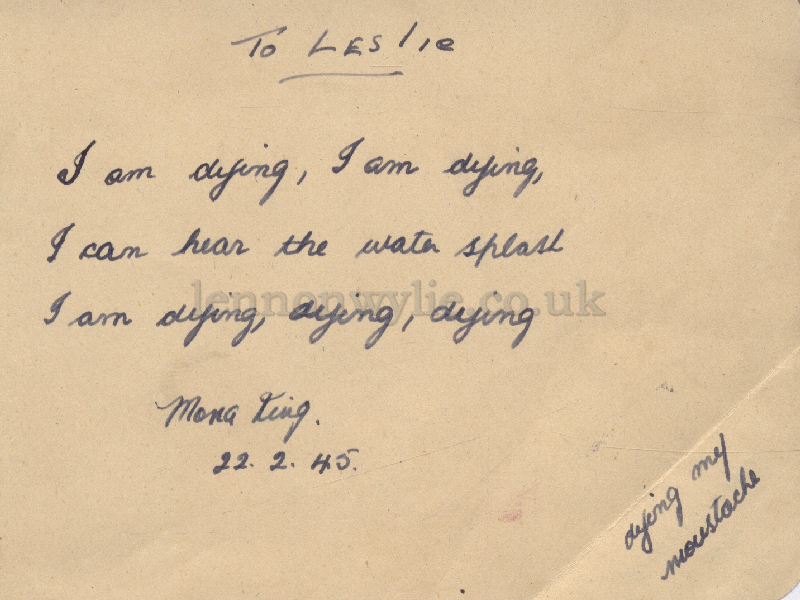 To Leslie
I am dying, I am dying,
I can hear the water splash
lennonwylie.co.uk
I am dying, dying, dying
Mona King.
22. 2. 45.
dying my
moustache